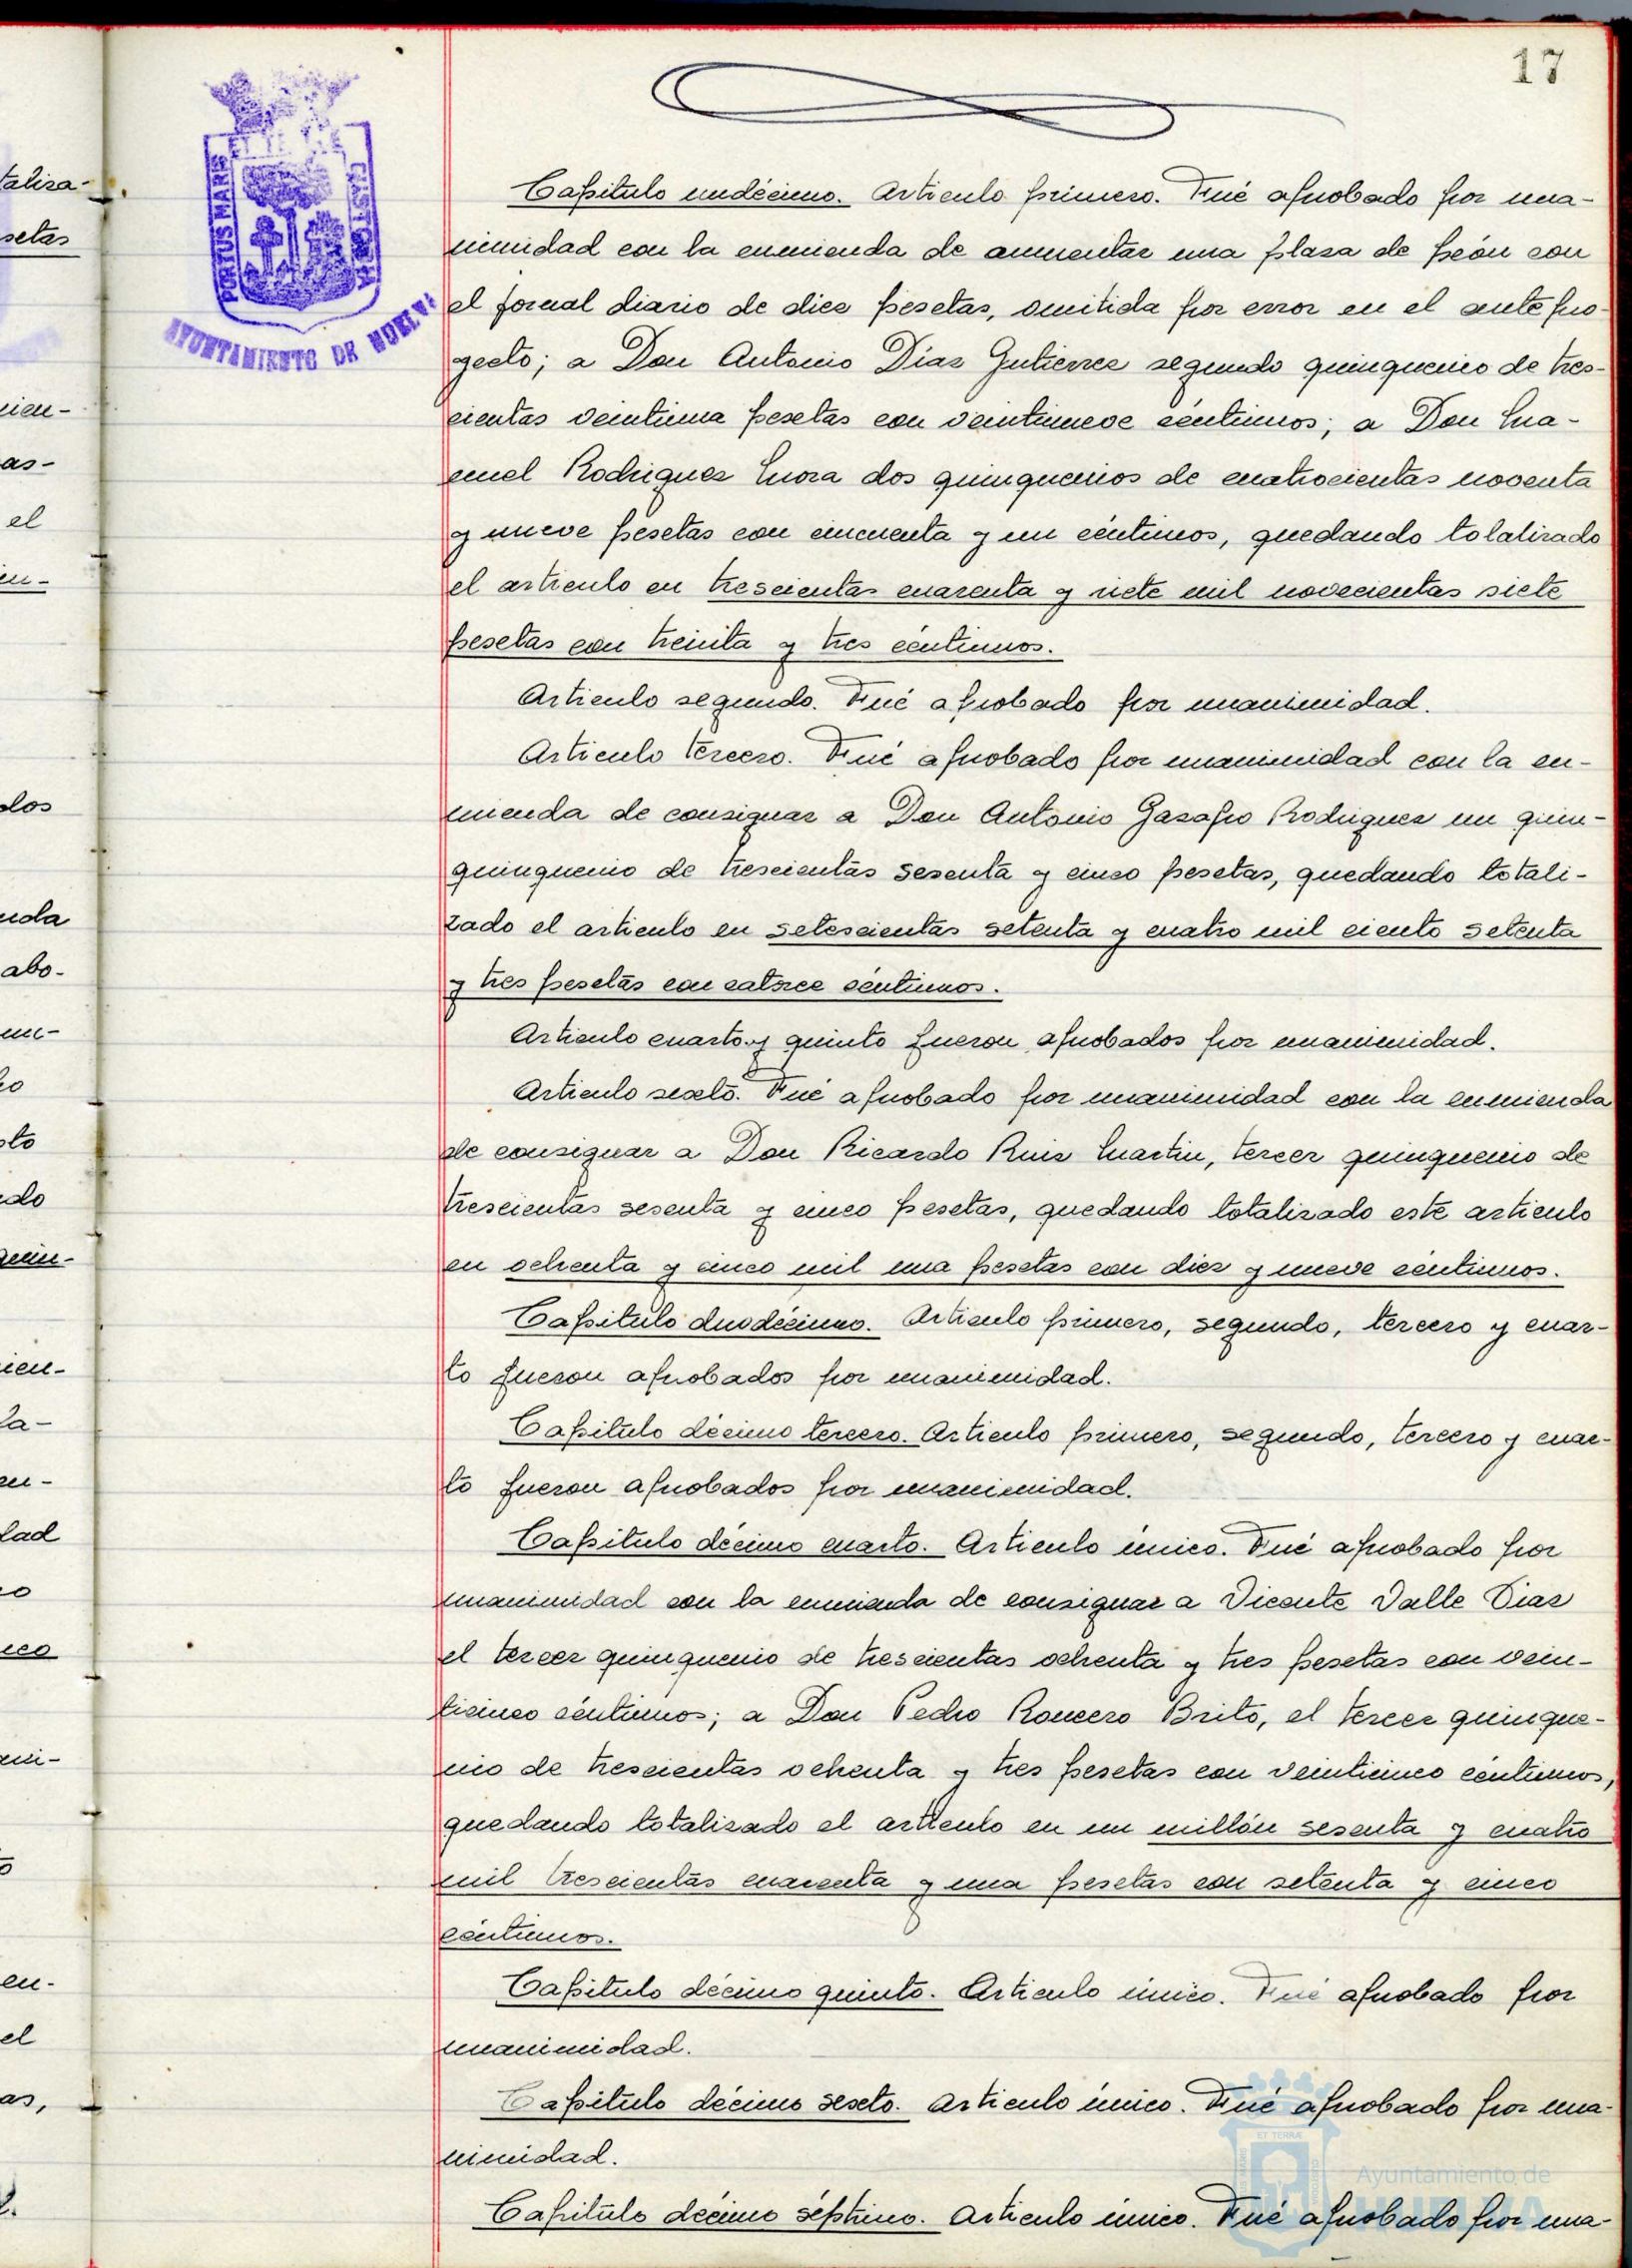 17
PORTUS MARIS
ET TERRAE
CUSTODIA
AYUNTAMIENTO DE HUELVA
Capitulo undécimo. Articulo primero. Fué aprobado por una-
nimidad con la enmienda de aumentar una plaza de peón con
el jornal diario de diez pesetas, omitida por error en el antepro-
yecto; a Don Antonio Díaz Gutierrez segundo quinquenio de tres-
cientas veintiuna pesetas con veintinueve céntimos; a Don Ma-
nuel Rodriguez Mora dos quinquenios de cuatrocientas noventa
y nueve pesetas con cincuenta y un céntimos, quedando totalizado
el articulo en trescientas cuarenta y siete mil novecientas siete
pesetas con treinta y tres céntimos.
Articulo segundo. Fué aprobado por unanimidad.
Articulo tercero. Fué aprobado por unanimidad con la en-
mienda de consignar a Don Antonio Gazapo Rodriguez un quin-
quinquenio de trescientas sesenta y cinco pesetas, quedando totali-
zado el articulo en setescientas setenta y cuatro mil ciento setenta
y tres pesetas con catorce céntimos.
Articulo cuarto y quinto fueron aprobados por unanimidad.
Articulo sexto. Fué aprobado por unanimidad con la enmienda
de consignar a Don Ricardo Ruiz Martin, tercer quinquenio de
trescientas sesenta y cinco pesetas, quedando totalizado este articulo
en ochenta y cinco mil una pesetas con diez y nueve céntimos.
Capitulo duodécimo. Articulo primero, segundo, tercero y cuar-
to fueron aprobados por unanimidad.
Capitulo décimo tercero. Articulo primero, segundo, tercero y cuar-
to fueron aprobados por unanimidad.
Capitulo décimo cuarto. Articulo único. Fué aprobado por
unanimidad con la enmienda de consignar a Vicente Valle Diaz
el tercer quinquenio de trescientas ochenta y tres pesetas con vein-
ticinco céntimos; a Don Pedro Roncero Brito, el tercer quinque-
nio de trescientas ochenta y tres pesetas con veinticinco céntimos,
quedando totalizado el articulo en un millón sesenta y cuatro
mil trescientas cuarenta y una pesetas con setenta y cinco
céntimos.
Capitulo décimo quinto. Articulo único. Fué aprobado por
unanimidad.
Capitulo décimo sexto. Articulo único. Fué aprobado por una-
nimidad.
Capitulo décimo séptimo. Articulo único. Fué aprobado por una-
Ayuntamiento de
HUELVA